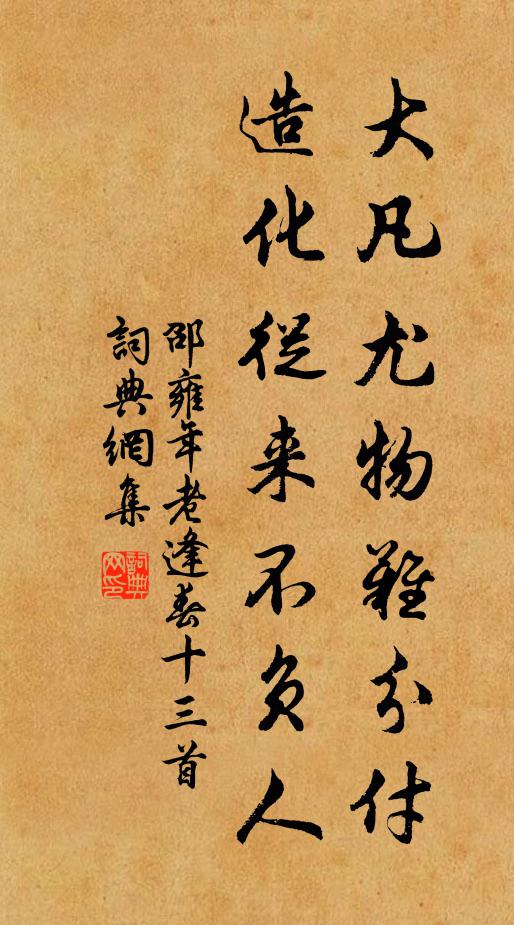 大凡尤物難分付
造化從来不負人
邵雍年老逢春十三首
詞典網集
詞典网印